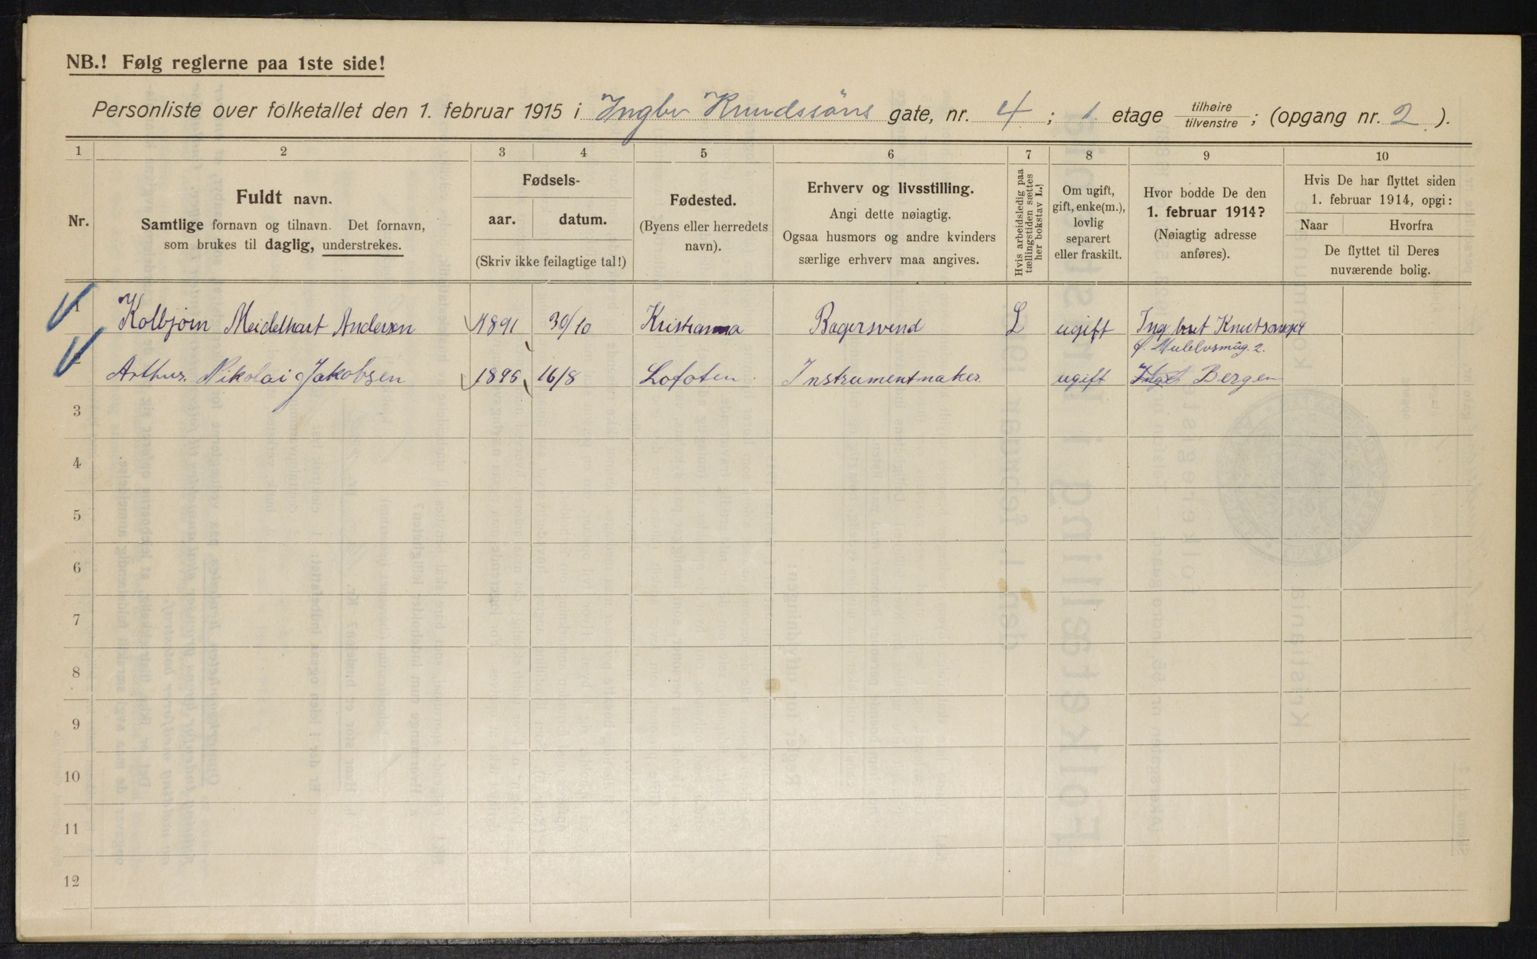 NB.! Følg reglerne paa 1ste side!
Personliste over folketallet den 1. februar 1915 i Ingbr Knudssøns gate, nr. 4 ; 1. etage tilhøire tilvenstre ; (opgang nr. 2 ).
1 2 3 4 5 6 7 8 9 10
Nr.
Fuldt navn.
Samtlige fornavn og tilnavn. Det fornavn,
som brukes til daglig, understrekes.
Fødsels-
aar. datum.
(Skriv ikke feilagtige tal!)
Fødested.
(Byens eller herredets
navn).
Erhverv og livsstilling.
Angi dette nøiagtig.
Ogsaa husmors og andre kvinders
særlige erhverv maa angives.
Hvis arbeidsledig paa
tællingstiden sættes
her bokstav L.!
Om ugift,
gift, enke(m.),
lovlig
separert
eller fraskilt.
Hvor bodde De den
1. februar 1914?
(Nøiagtig adresse
anføres).
Hvis De har flyttet siden
1. februar 1914, opgi:
Naar Hvorfra
De flyttet til Deres
nuværende bolig.
1 Kolbjørn Meidelhart Andersen 1891 30/10 Kristiania Bagersvend L ugift
2 Arthur Nikolai Jakobsen 1895 16/8 Lofoten. Instrumentmaker ugift Bergen
3
4
5
6
7
8
9
10
11
12